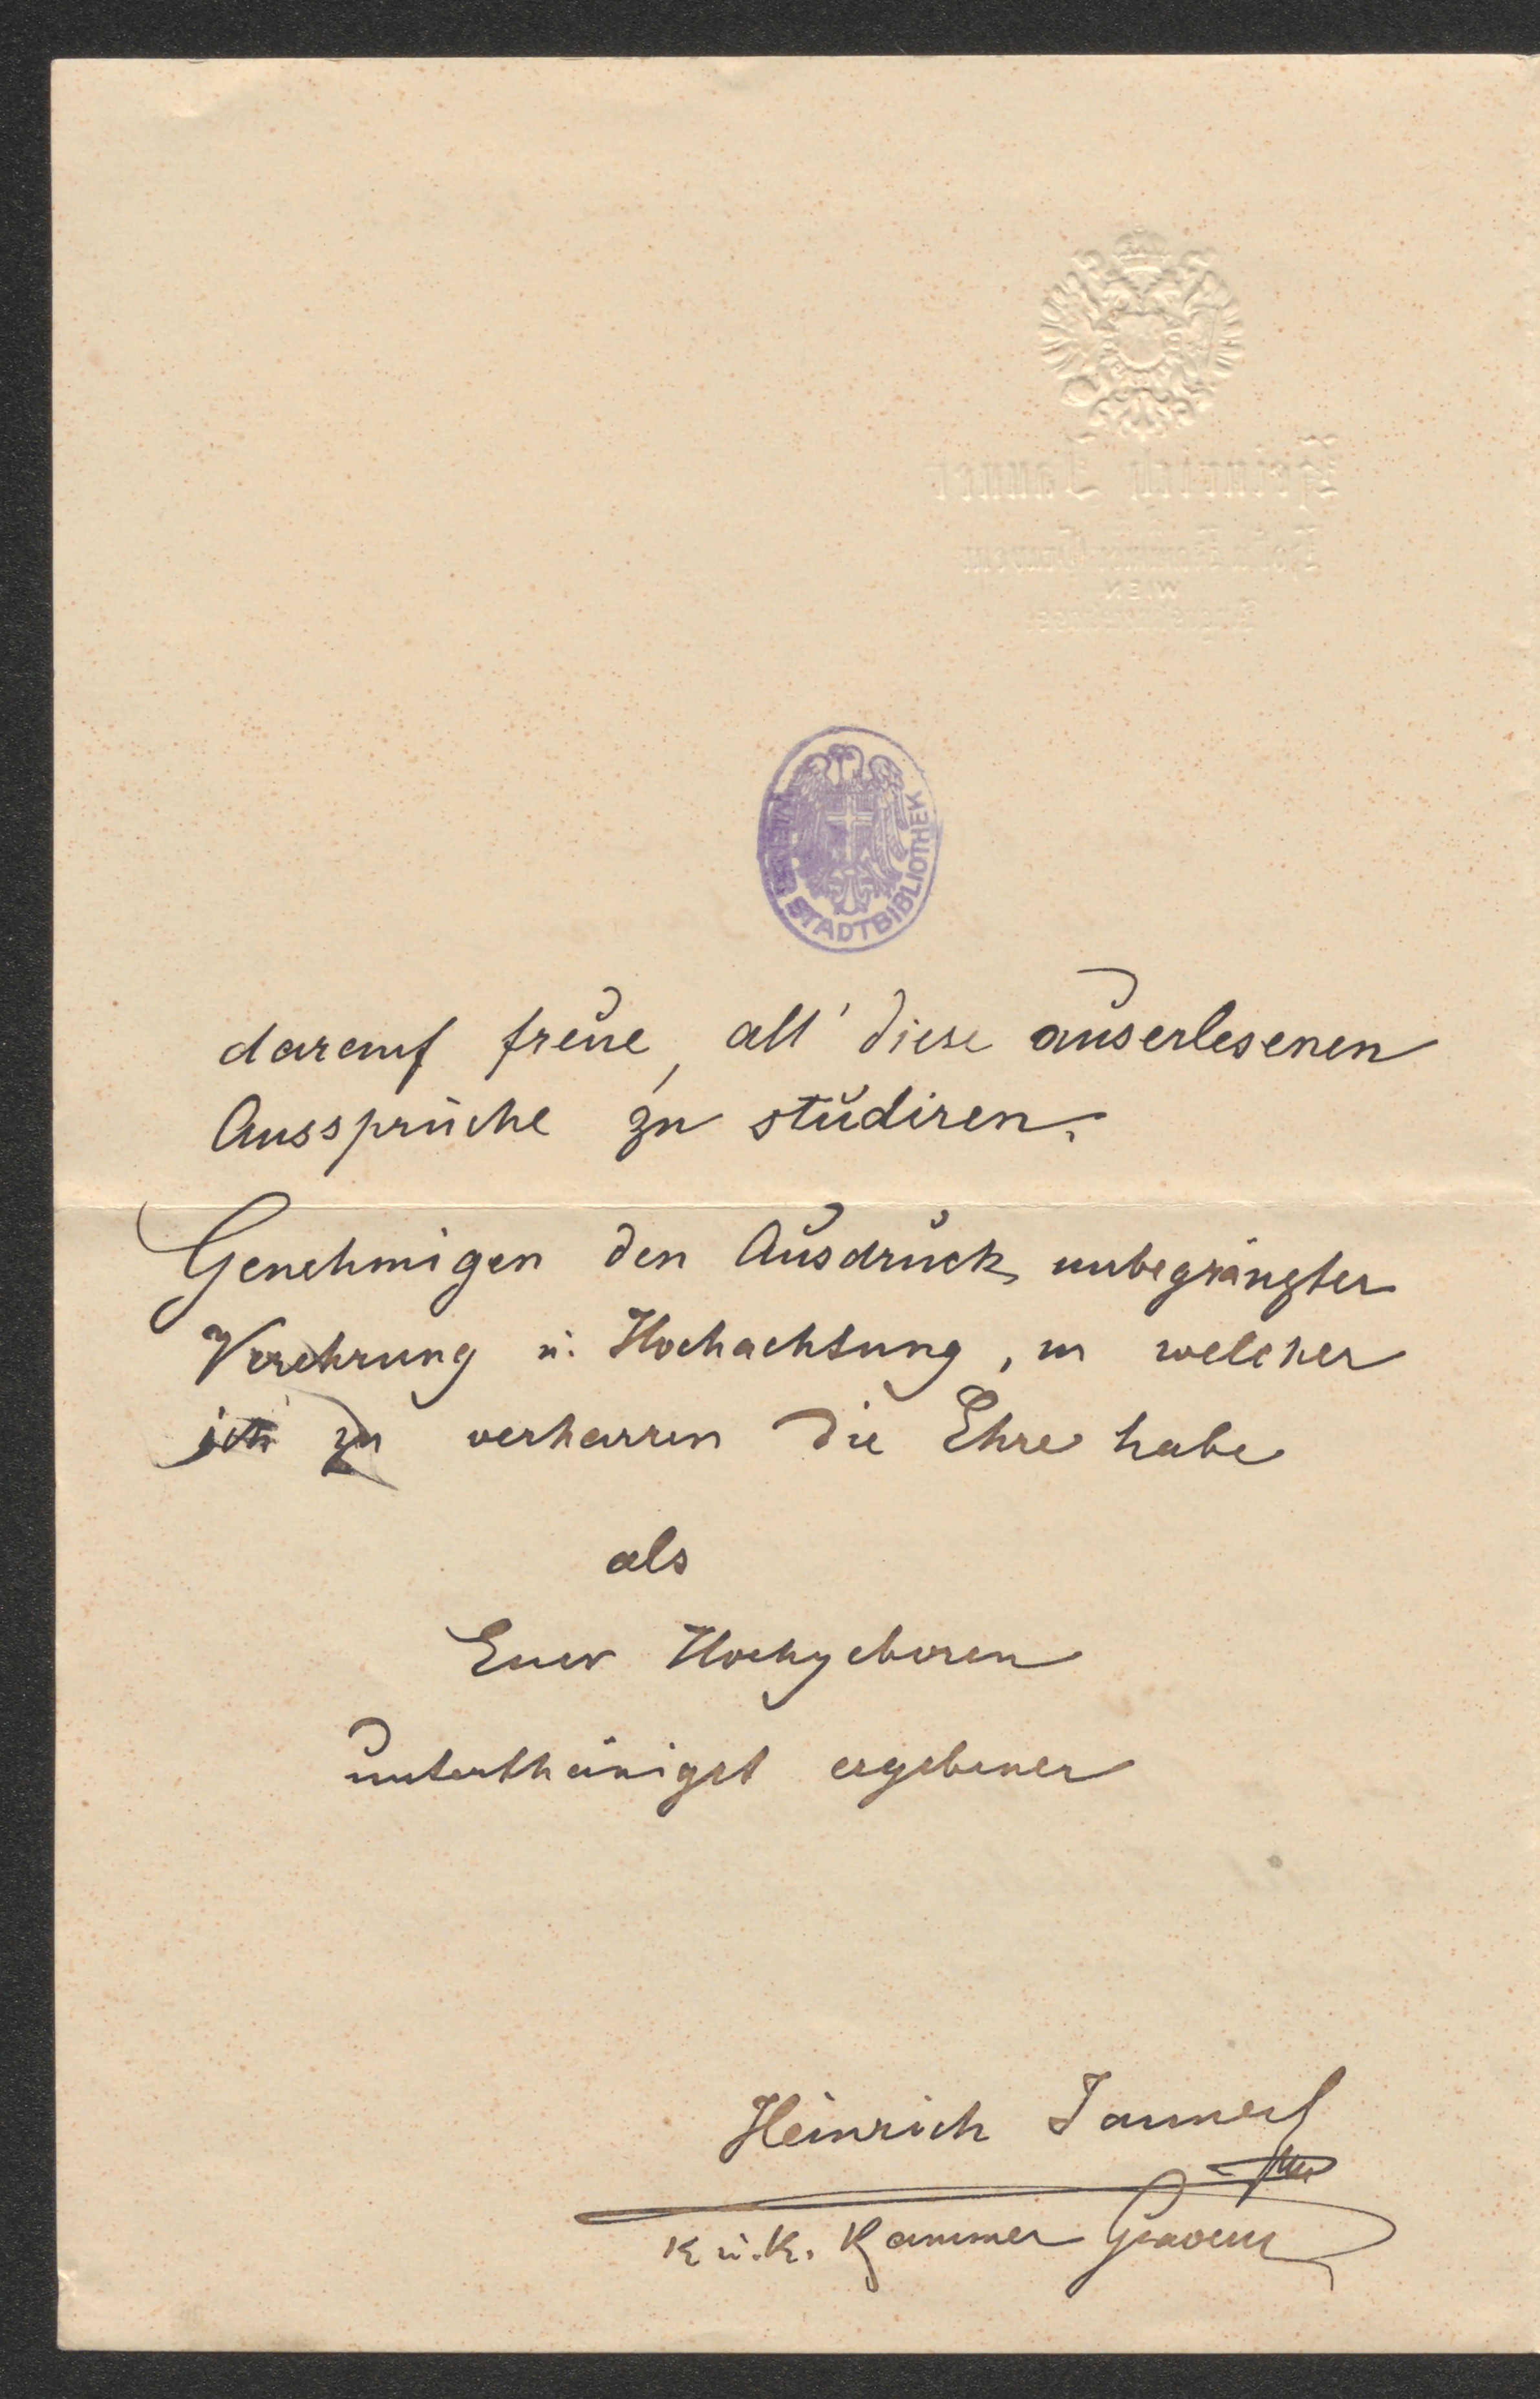 Heinrich Jauner
WIEN
WIENER STADTBIBLIOTHEK
darauf freue, all' diese auserlesenen
Aussprüche zu studiren.
Genehmigen den Ausdruck unbegränzter
Verehrung u. Hochachtung, in welcher
ich zu verharren die Ehre habe
als
Euer Hochgeboren
unterthänigst ergebener
Heinrich Jauner
K. u. K. Kammer Graveur